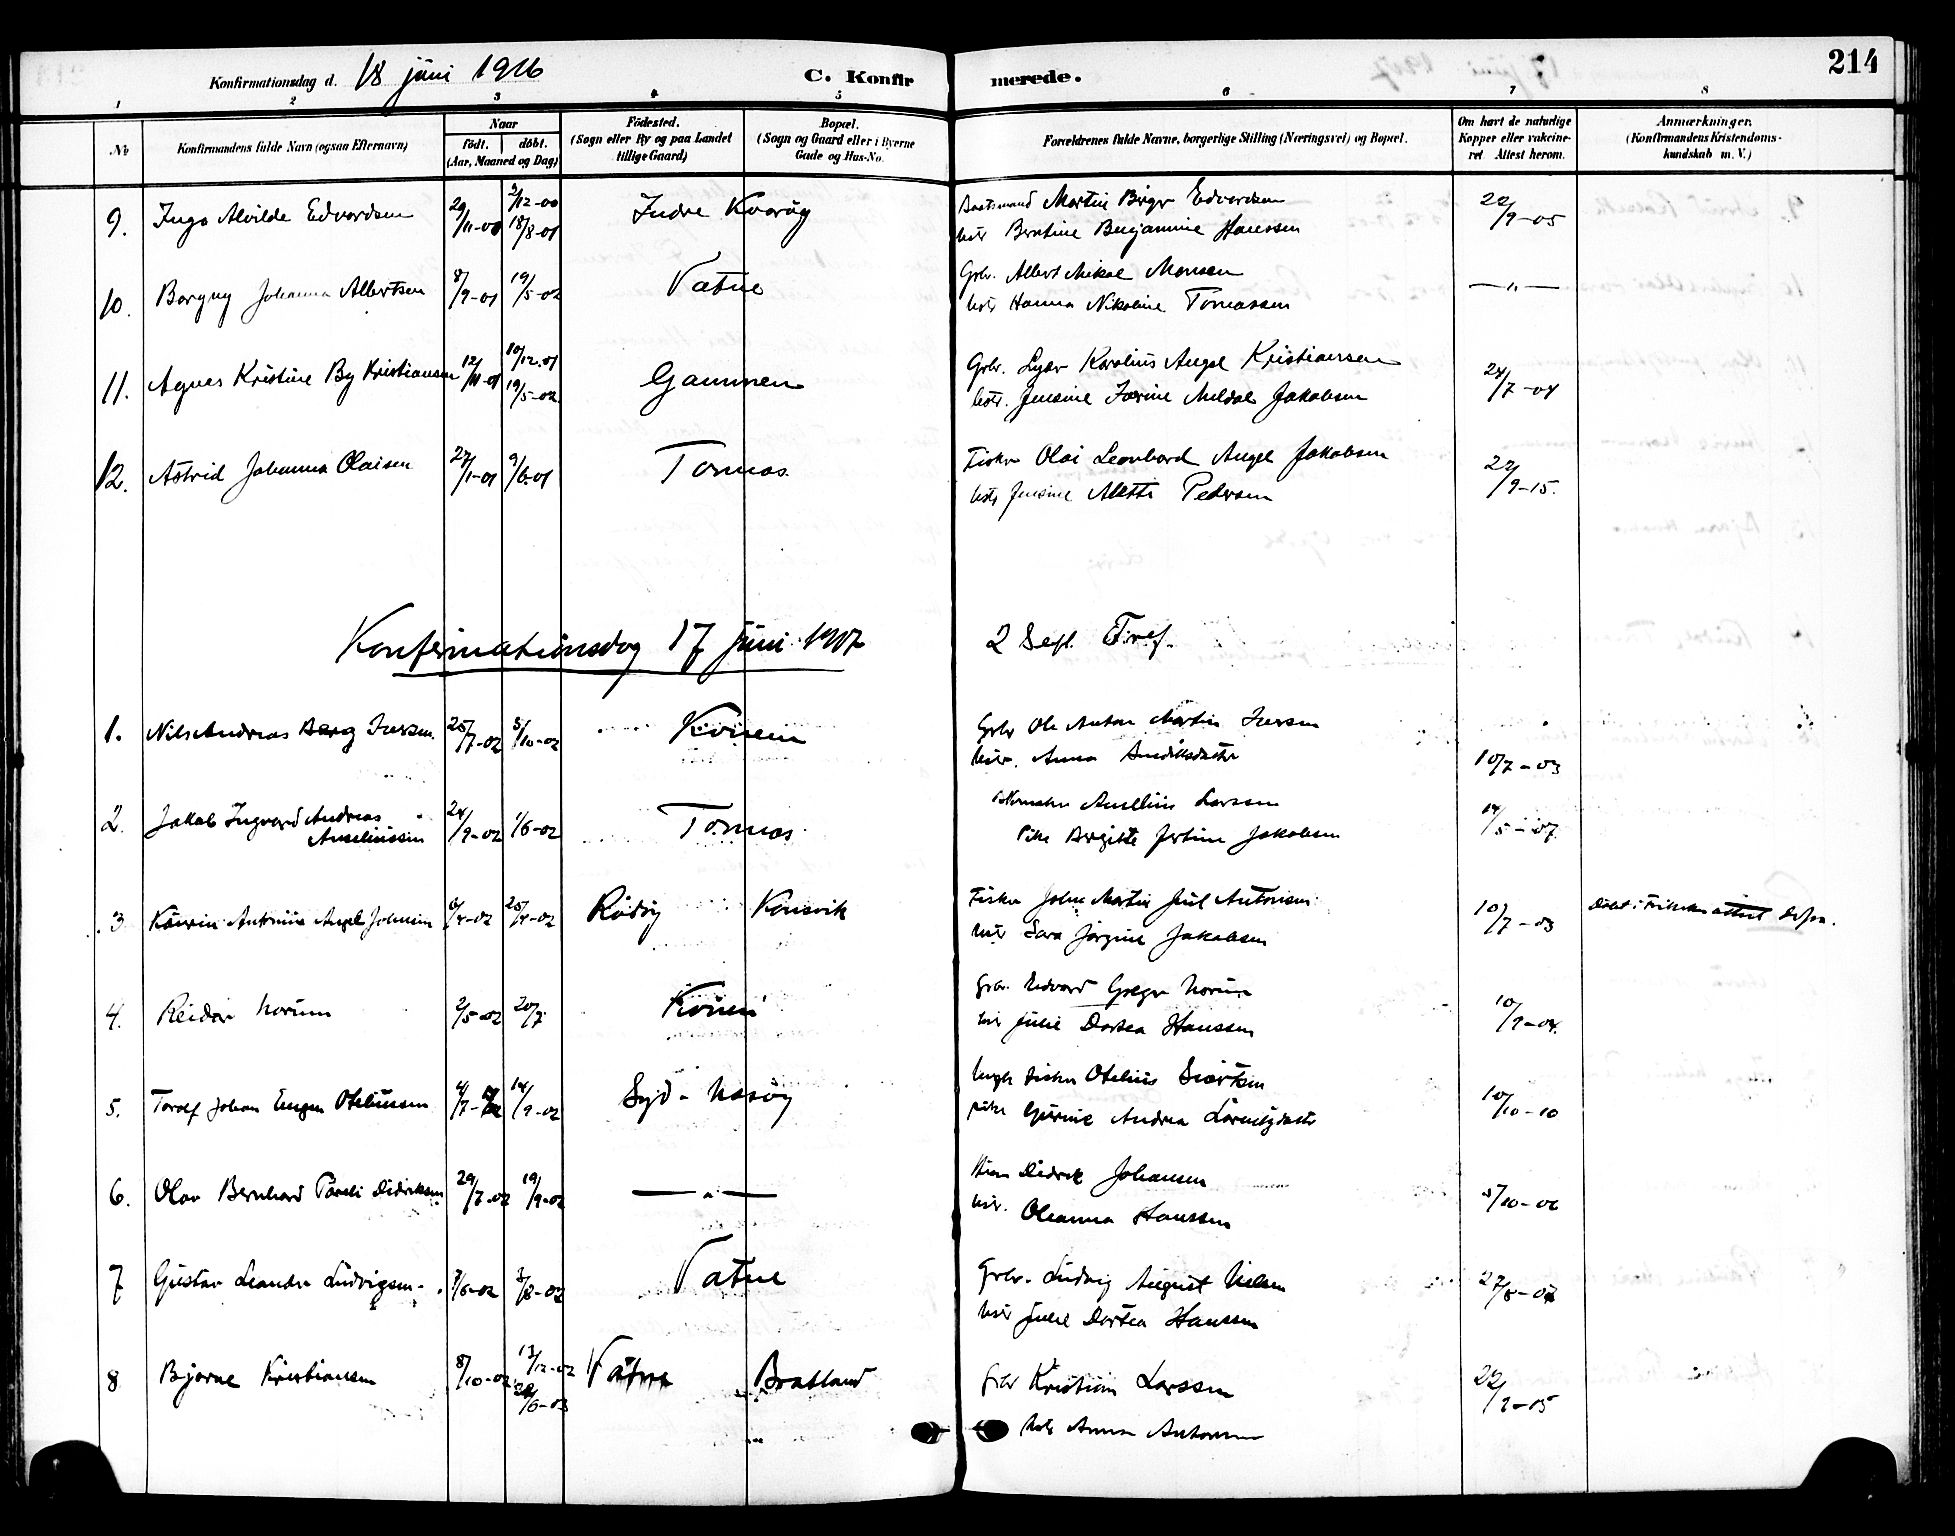 214
Konfirmationsdag d. 18 juni 1916 C. Konfirmerede.
1 2 3 4 5 6 7 8
No
Konfirmandens fulde Navn (ogsaa Efternavn)
Naar
født. døbt.
(Aar, Maaned og Dag)
Fødested.
(Sogn eller By og paa Landet
tillige Gaard)
Bopæl.
(Sogn og Gaard eller i Byerne
Gade og Hus-No.
Forældrenes fulde Navne, borgerlige Stilling (Næringsvei) og Bopæl.
Om havt de naturlige
Kopper eller vakcine-
ret. Attest herom.
Anmærkninger.
(Konfirmandens Kristendoms-
kundskab m. V.)
9. Inga Alvilde Edvardsen 29/11-00 2/12-00 18/8-01 Indre Kvarøy Martin Birger Edvardsen 22/9-05
hstr Berntine Benjamine Hanssen
10. Borgny Johanna Albertsen 8/9-01 19/5-02 Vatne Gbr. Albert Mikal Monsen —"—
hstr Hanna Nikoline Tomassen
11. Agnes Kristine By Kristiansen 12/11-01 10/12-01 19/5-02 Gammen Gbr. Lyder Karolius Angel Kristiansen 24/7-04
hstr. Jensine Meldal Jakobsen
12. Astrid Johanna Olaisen 27/1-01 9/6-01 Tonnes Fisker Olai Leonhard Angel Jakobsen 22/9-15.
hstr Jensine Alette Pedersen
Konfirmationsdag 17 juni 1917 2 Sept. Tref.
1. Nils Andreas Berg Iversen 25/7-02 5/10-02 Kvinen Gbr Ole Anton Martin Iversen
hstr. Anna 10/7-03
2. Jakob Ingvard Andreas Anseliussen 24/9-02 1/6-02 Tonnes Anselius Larsen 14/5-07
Pike Bergitte Jakobsen
3 Antonius Angel Johnsen 6/4-02 25/4-02 Rødøy Konsvik Fisker John Martin Juul Antonsen 10/7-03
hstr Sara Jørgine Jakobsen
4. Reidar Norum 2/5-02 20/7 Kvinen Gbr. Edvard Greger Norum 10/9-04.
hstr Julie Dortea Hanssen
5. Torolf Johan Eugen Oteliussen 14/9-02 Syd-Nesøy Ungk. Fisker Otelius Sivertsen 10/10-10
pike Gurine Andrea
6. Olav Bernhard Pareli Didriksen 29/7-02 19/9-02 —"— Didrik Johansen
hstr. Oleanna Hanssen
7 Gustav Leander Ludvigsen 3/8-02 Vatne Gbr. Ludvig August Nilsen
hstr Julie Dortea Hanssen
8 Bjarne Kristiansen 8/10-02 13/12-02 Vatne Bratland Gbr Kristian Larssen
hstr Anna Antonsen